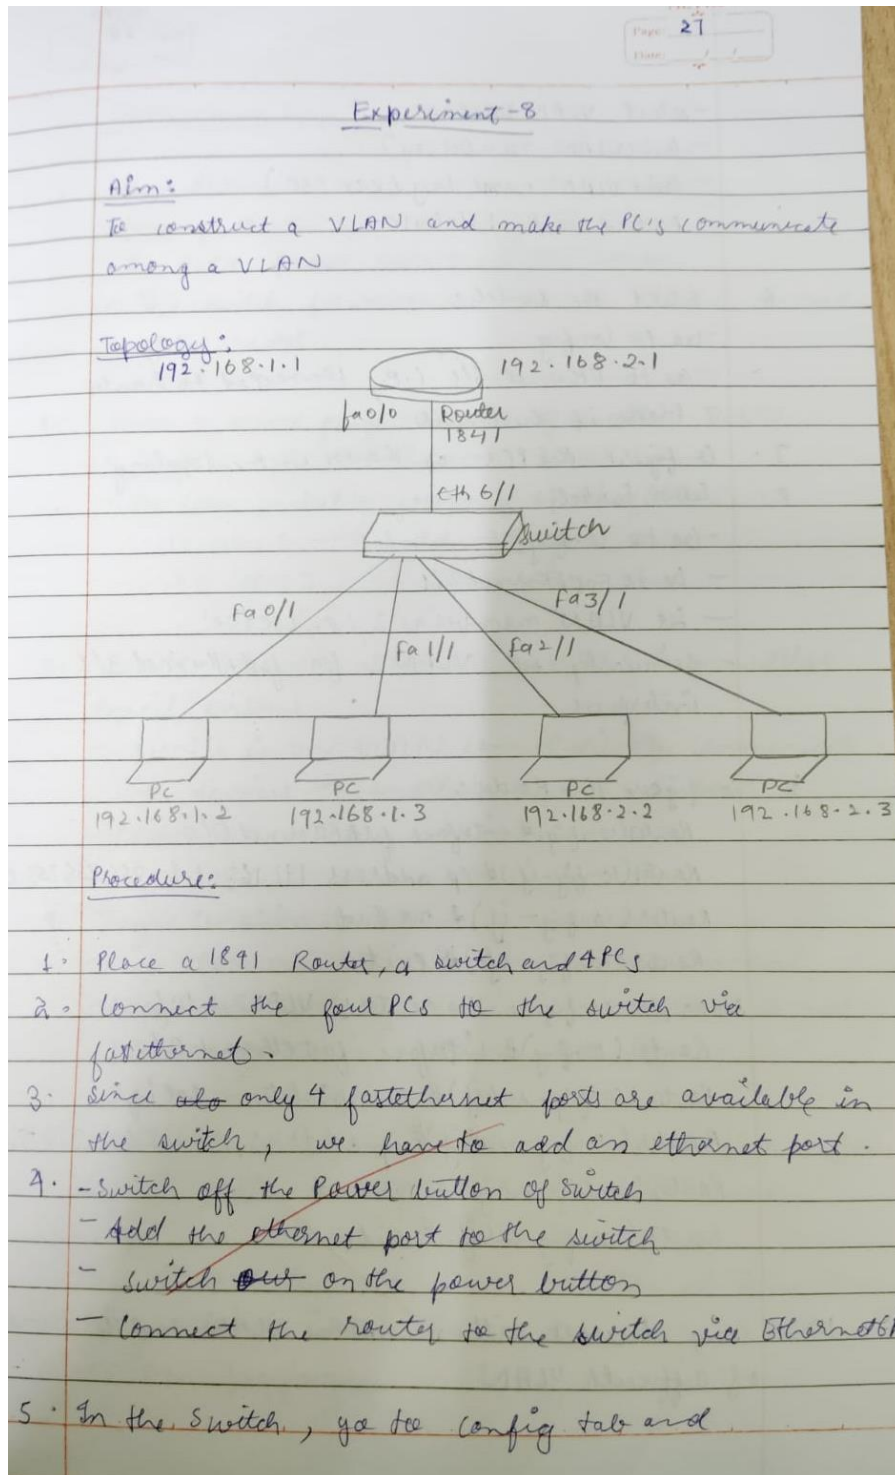 Page: 27
Date: / /
Experiment-8
Aim:
To construct a VLAN and make the PC's communicate
among a VLAN
Topology:
192.168.1.1 192.168.2.1
fa0/0 Router
1841
eth 6/1
Switch
fa0/1 fa3/1
fa1/1 fa2/1
PC PC PC PC
192.168.1.2 192.168.1.3 192.168.2.2 192.168.2.3
Procedure:
1. Place a 1841 Router, a switch and 4 PCs
2. Connect the four PCs to the switch via
fastethernet.
3. Since only 4 fastethernet ports are available in
the switch, we have to add an ethernet port.
4. - Switch off the Power button of switch
- Add the ethernet port to the switch
- switch on the power button
- Connect the router to the switch via
5. In the switch, go to config tab and